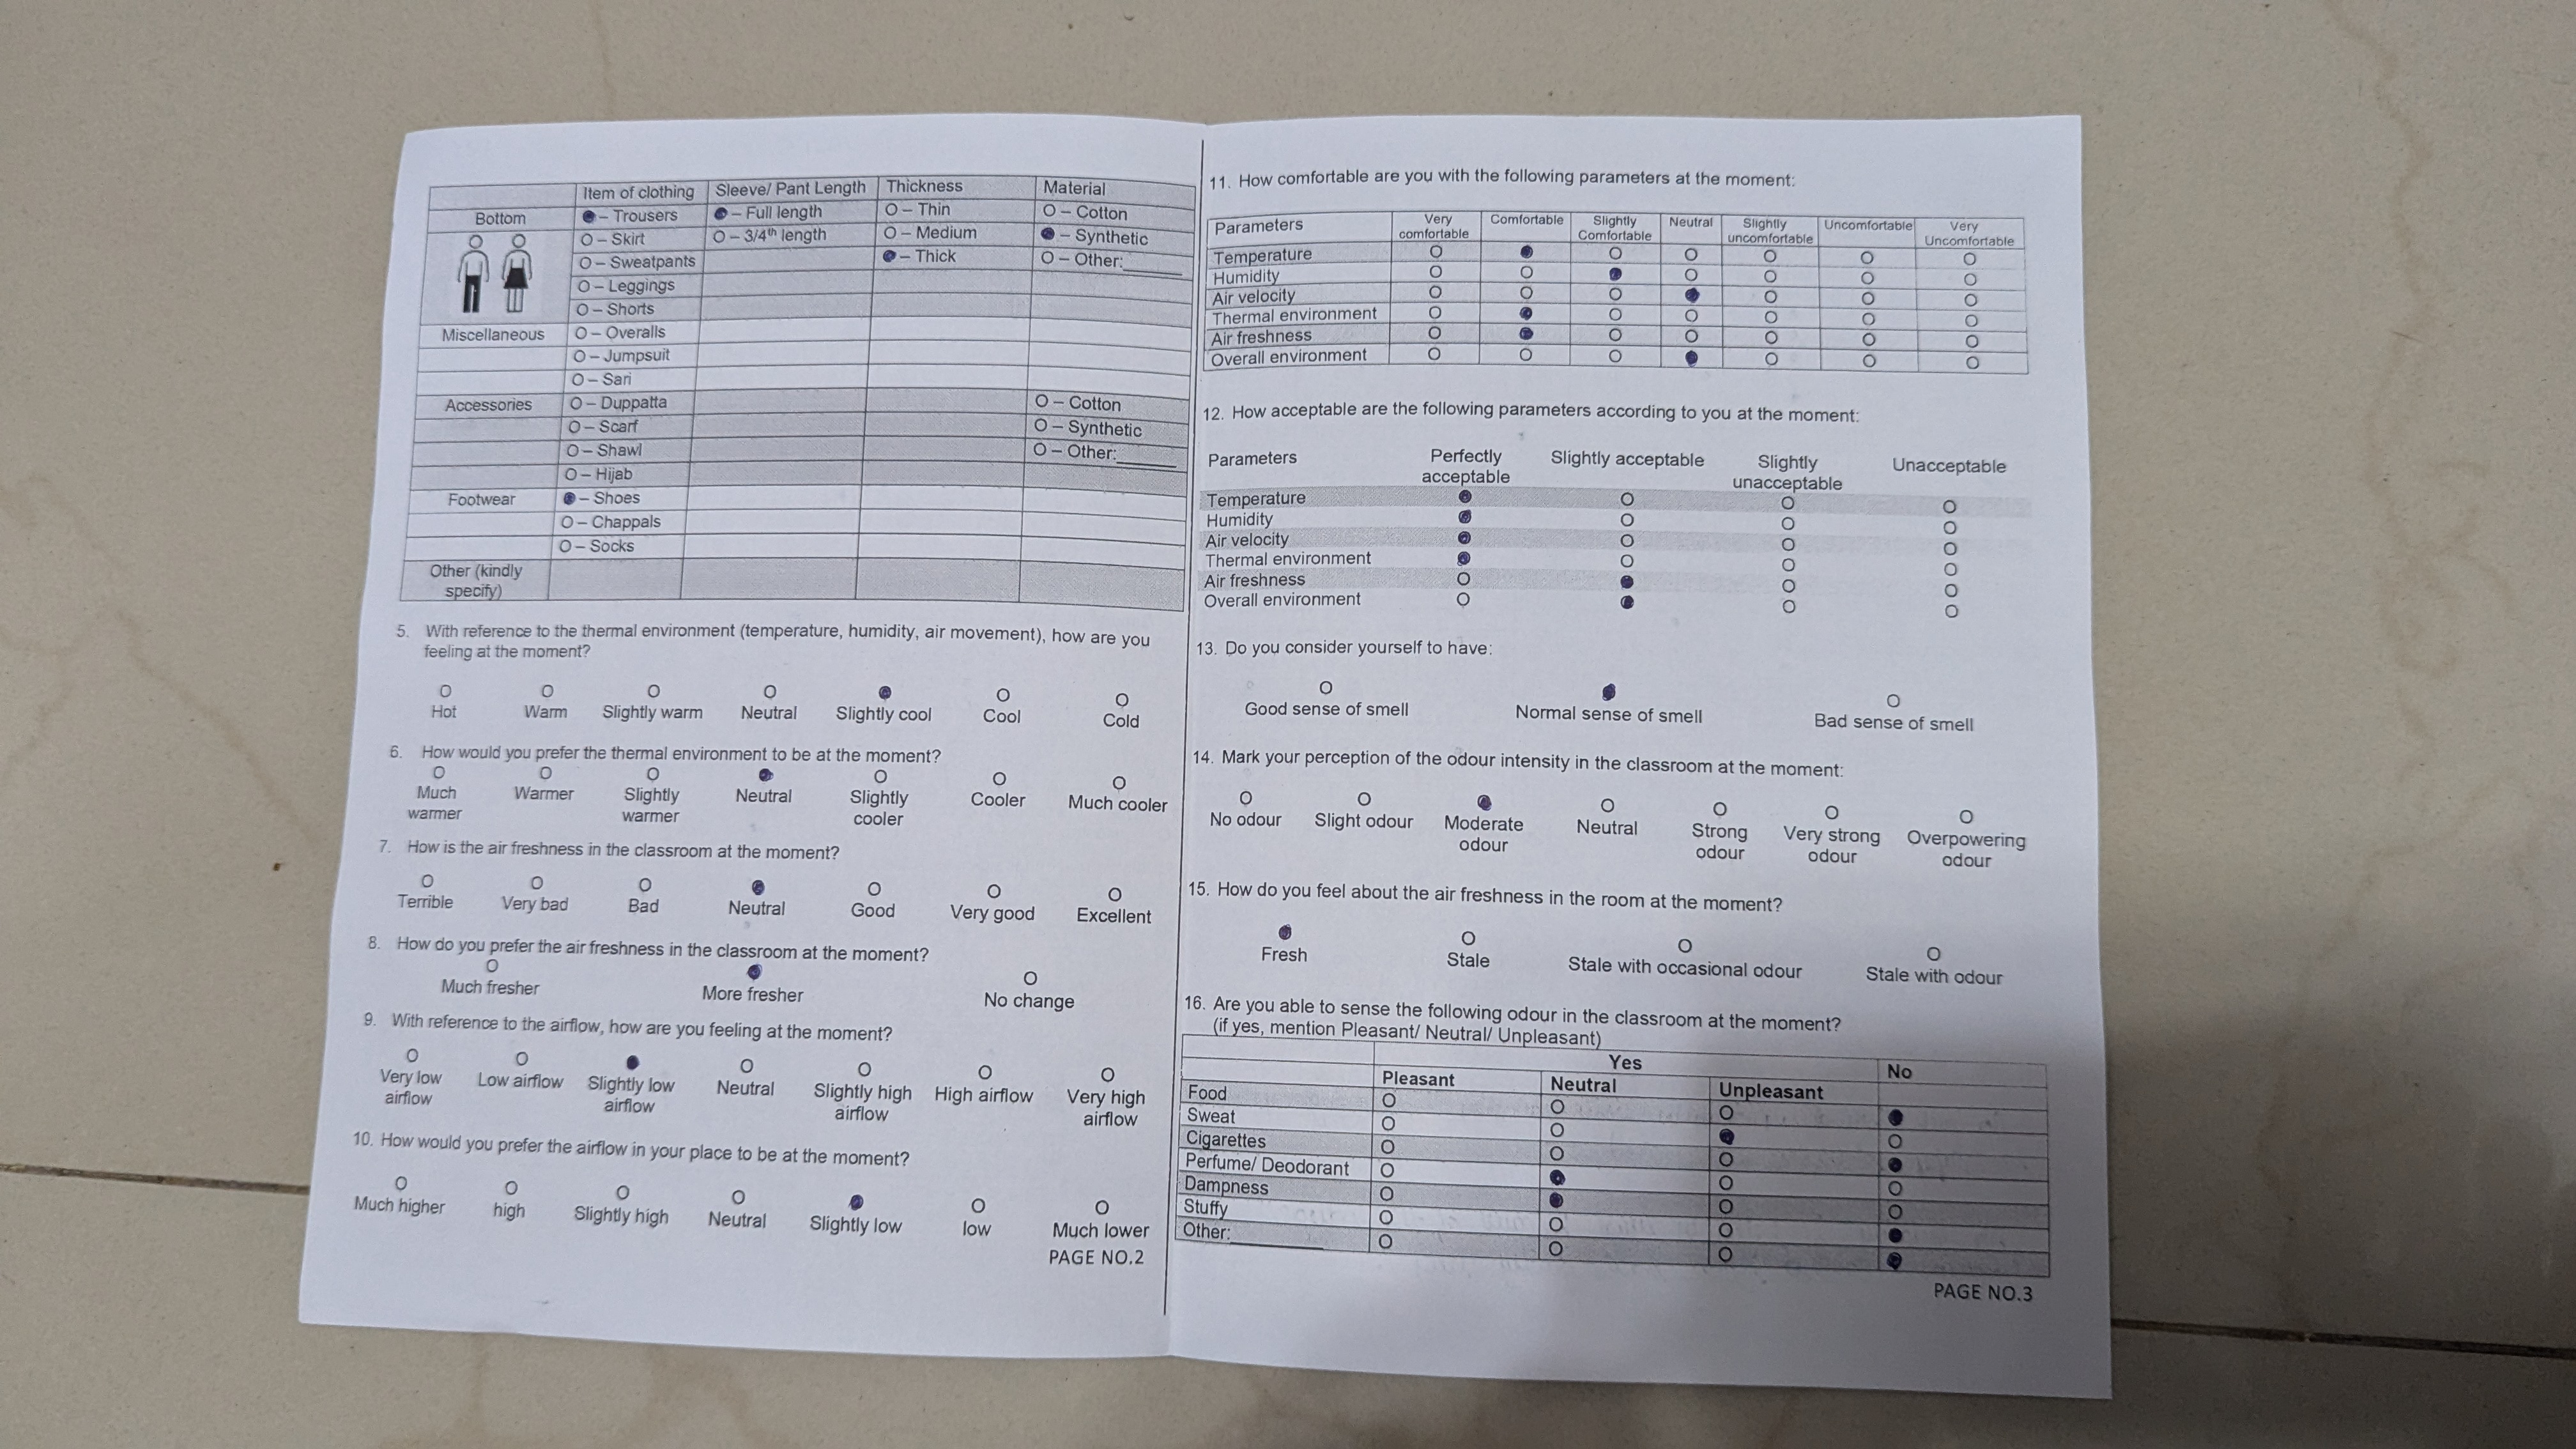 Item of clothing Sleeve/ Pant Length Thickness Material
Bottom ● – Trousers ● – Full length O – Thin O – Cotton
O – Skirt O – 3/4th length O – Medium ● – Synthetic
O – Sweatpants ● – Thick O – Other:_______
O – Leggings
O – Shorts
Miscellaneous O – Overalls
O – Jumpsuit
O – Sari
Accessories O – Duppatta O – Cotton
O – Scarf O – Synthetic
O – Shawl O – Other:_______
O – Hijab
Footwear ● – Shoes
O – Chappals
O – Socks
Other (kindly
specify)
5. With reference to the thermal environment (temperature, humidity, air movement), how are you
feeling at the moment?
O O O O ● O O
Hot Warm Slightly warm Neutral Slightly cool Cool Cold
6. How would you prefer the thermal environment to be at the moment?
O O O ● O O O
Much Warmer Slightly Neutral Slightly Cooler Much cooler
warmer warmer cooler
7. How is the air freshness in the classroom at the moment?
O O O ● O O O
Terrible Very bad Bad Neutral Good Very good Excellent
8. How do you prefer the air freshness in the classroom at the moment?
O ● O
Much fresher More fresher No change
9. With reference to the airflow, how are you feeling at the moment?
O O ● O O O O
Very low Low airflow Slightly low Neutral Slightly high High airflow Very high
airflow airflow airflow airflow
10. How would you prefer the airflow in your place to be at the moment?
O O O O ● O O
Much higher high Slightly high Neutral Slightly low low Much lower
PAGE NO.2
11. How comfortable are you with the following parameters at the moment:
Parameters Very Comfortable Slightly Neutral Slightly Uncomfortable Very
comfortable Comfortable uncomfortable Uncomfortable
Temperature O ● O O O O O
Humidity O O ● O O O O
Air velocity O O O ● O O O
Thermal environment O ● O O O O O
Air freshness O ● O O O O O
Overall environment O O O ● O O O
12. How acceptable are the following parameters according to you at the moment:
Parameters Perfectly Slightly acceptable Slightly Unacceptable
acceptable unacceptable
Temperature ● O O O
Humidity ● O O O
Air velocity ● O O O
Thermal environment ● O O O
Air freshness O ● O O
Overall environment O ● O O
13. Do you consider yourself to have:
O ● O
Good sense of smell Normal sense of smell Bad sense of smell
14. Mark your perception of the odour intensity in the classroom at the moment:
O O ● O O O O
No odour Slight odour Moderate Neutral Strong Very strong Overpowering
odour odour odour odour
15. How do you feel about the air freshness in the room at the moment?
● O O O
Fresh Stale Stale with occasional odour Stale with odour
16. Are you able to sense the following odour in the classroom at the moment?
(if yes, mention Pleasant/ Neutral/ Unpleasant)
Yes No
Pleasant Neutral Unpleasant
Food O O O ●
Sweat O O ● O
Cigarettes O O O ●
Perfume/ Deodorant O ● O O
Dampness O ● O O
Stuffy O O O ●
Other:__________ O O O ●
PAGE NO.3